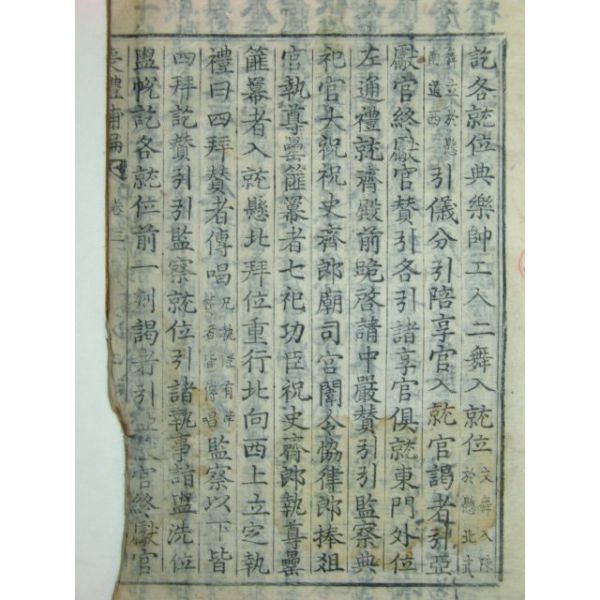 訖各就位典樂帥工人二舞入就位文舞入陳於懸北武
舞立於懸南道西引儀分引陪享官入就官謁者引亞
獻官終獻官贊引各引諸享官俱就東門外位
左通禮就齊殿前跪啓請中嚴贊引引監察典
祀官大祝祝史齊郎廟司宮闈令協律郎捧俎
官執尊罍篚羃者七祀功臣祝史齊郎執尊罍
篚羃者入就懸北拜位重行北向西上立定執
禮曰四拜贊者傳唱凡執禮有辭贊者皆傳唱監察以下皆
四拜訖贊引引監察就位引諸執事詣盥洗位
盥帨訖各就位前一刻謁者引亞獻官終獻官
喪禮補編 卷三